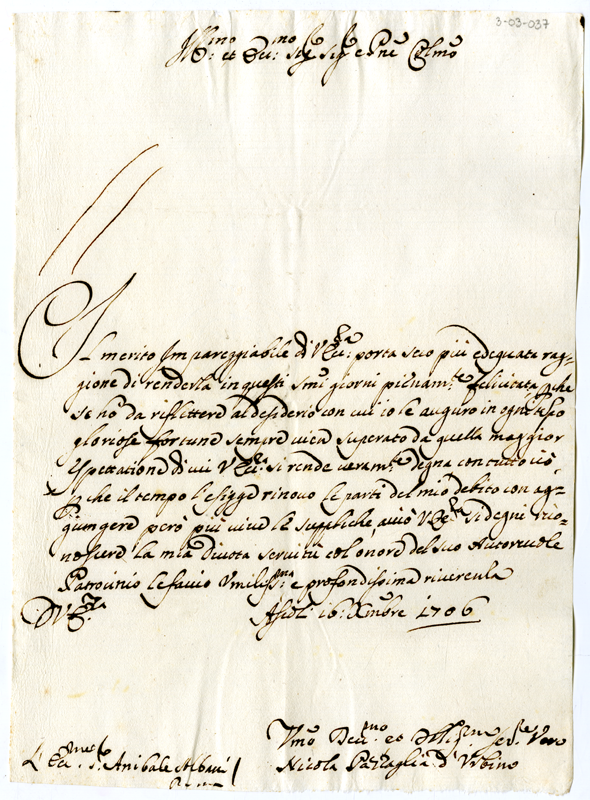 3-03-037
Ill:mo et Ecc:mo Sig.r Sig.r e Pne Colmo
Il merito Impareggiabile di V.Ecc:za porta seco più adequata rag=
gione di renderla in questi Smi giorni pienam:te felicitata, perche
se no' da riflettere al desiderio con cui io le auguro in ogni tempo
gloriose fortune sempre viem superato da quella maggior
espettatione di cui V.Ecc:za si rende veram:te degna con tutto ciò
perche il tempo l'esigge rinovo le parti del mio debito con ag=
giungere però più vive le suppliche, acciò V.Ecc:za si degni rico=
noscere la mia divota servitù col onore del suo Autorevole
Patrocinio le faccio Umiliss:ma e profondissima riverenza
D.V.E:za
Ascoli 16: Xmbre 1706
Vmo Deu:mo et Obblig:mo Ser:re Vero
Nicola Pazzaglia d'Urbino
L' Ecc:mo S. Anibale Albani
Roma